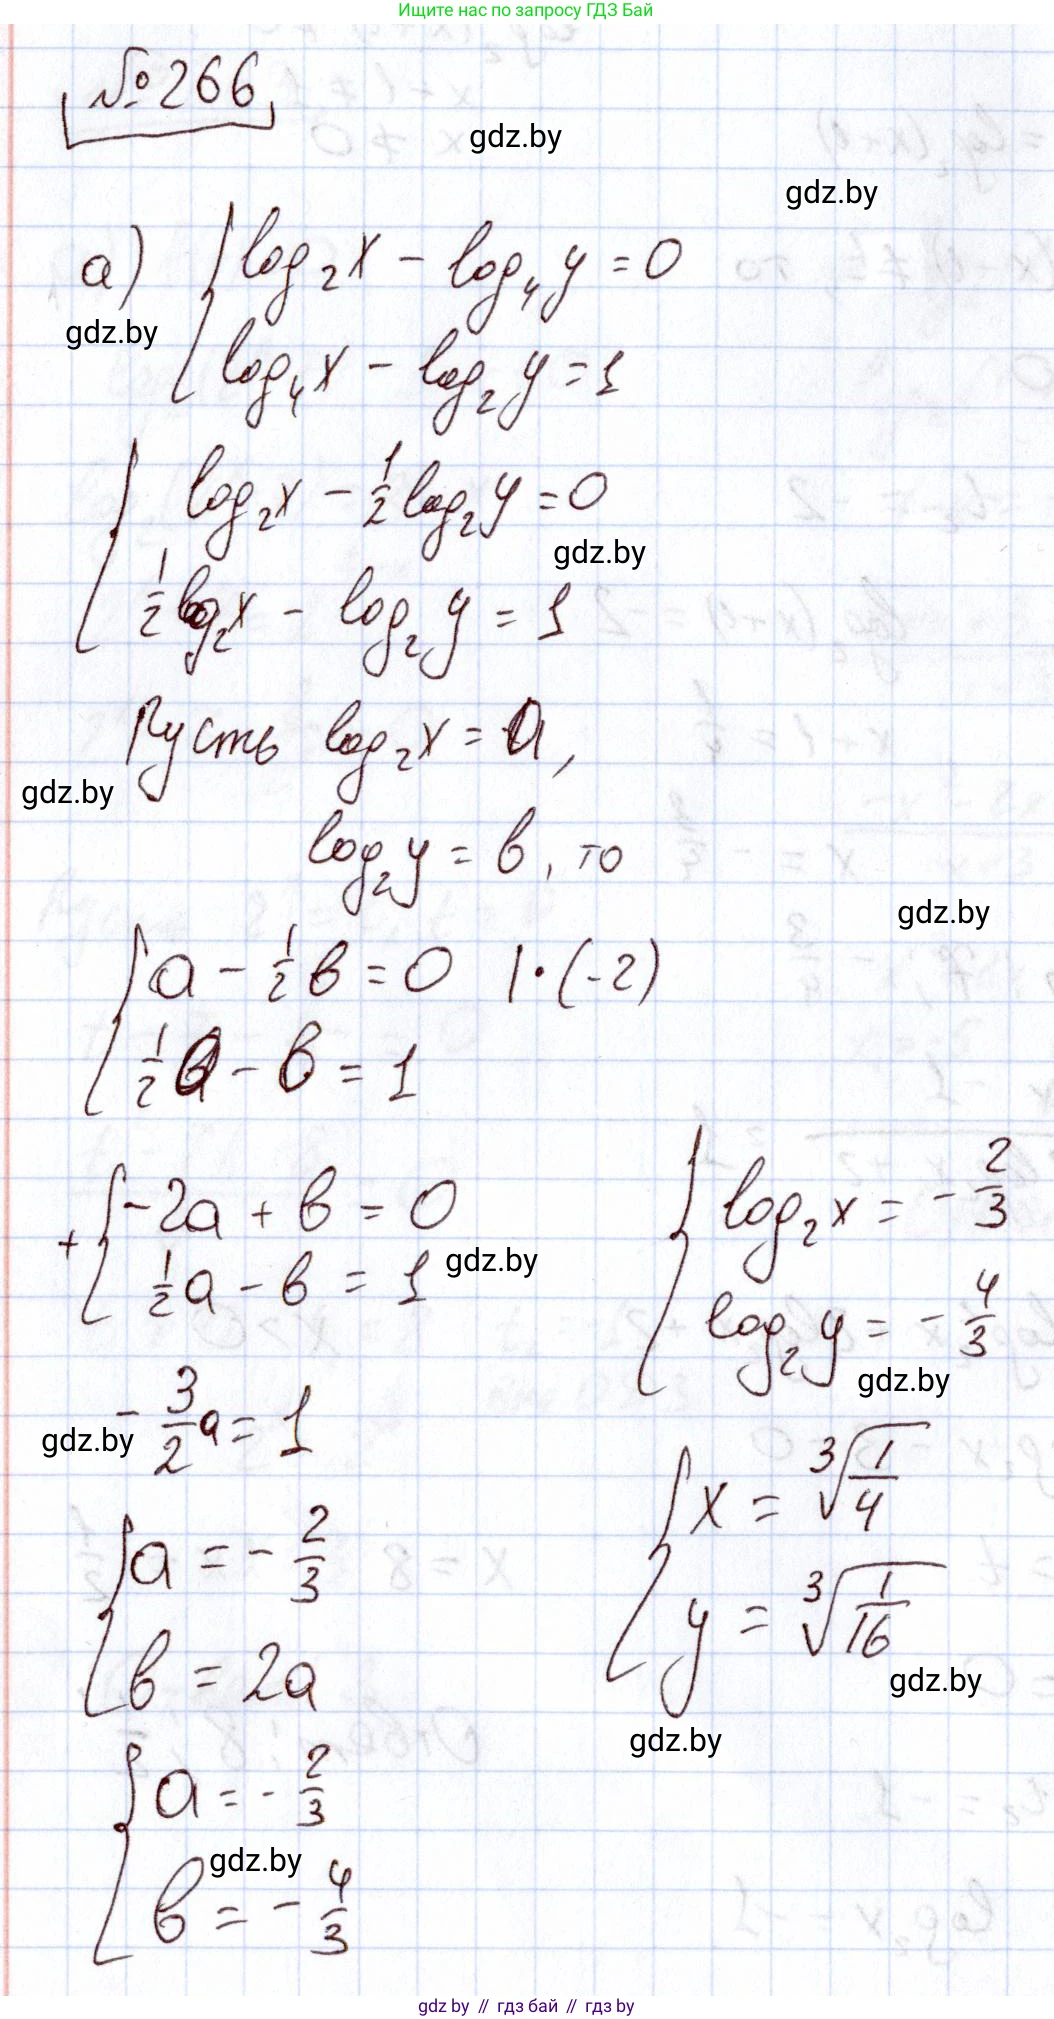 Ищите нас по запросу ГДЗ Бай
№266
gdz.by
gdz.by
а) { log₂x - log₄y = 0
gdz.by
log₄x - log₂y = 1
{ log₂x - 1/2 log₂y = 0
gdz.by
1/2 log₂x - log₂y = 1
Пусть log₂x = a,
gdz.by
log₂y = в, то
gdz.by
{ a - 1/2 в = 0 | · (-2)
1/2 a - в = 1
+ { -2a + в = 0
1/2 a - в = 1
gdz.by
- 3/2 a = 1
gdz.by
{ a = - 2/3
в = 2a
{ a = - 2/3
gdz.by
в = - 4/3
{ log₂x = - 2/3
log₂y = - 4/3
gdz.by
{ x = ³√(1/4)
y = ³√(1/16)
gdz.by
gdz.by
gdz by // гдз бай // гдз by